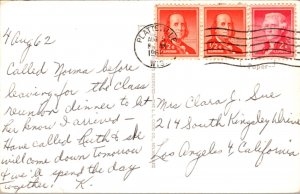 4 Aug 62
Called Norma before
leaving for the class
reunion dinner to let
her know I arrived –
Have called Ruth & she
will come down tomorrow
& we'll spend the day
together! K.
PLATTEVILLE
AUG
PM
196
WIS.
½¢
½¢
2¢
Mrs Clara J. Sue
214 South Kingsley Drive
Los Angeles 4, California